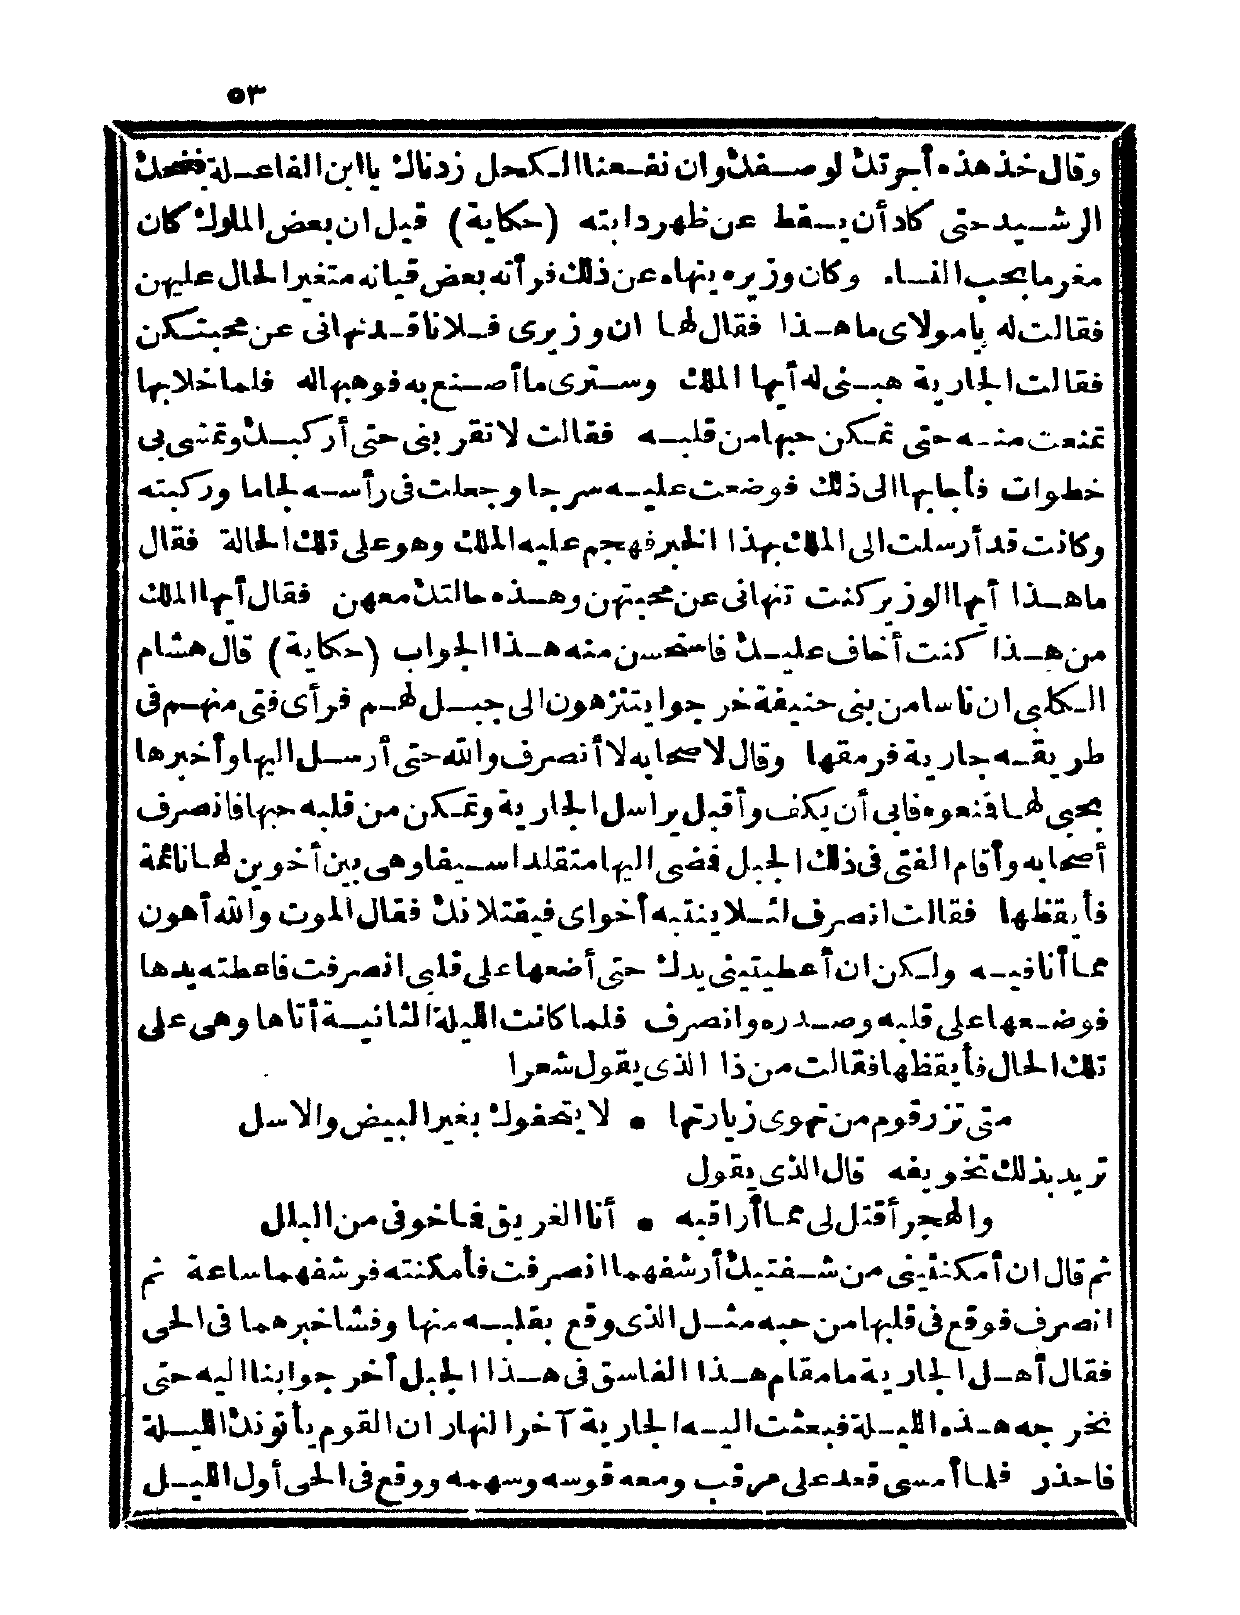 ٥٣
وقال خذ هذه أجرتك لوصفك وان نفعنا الكحل زدناك يا ابن الفاعلة فضحك
الرشيد حتى كاد أن يسقط عن ظهر دابته (حكاية) قيل ان بعض الملوك كان
مغرما بحب النساء وكان وزيره ينهاه عن ذلك فرأته بعض قيانه متغير الحال عليهن
فقالت له يا مولاى ما هذا فقال لها ان وزيرى فلانا قد نهانى عن محبتكن
فقالت الجارية هبنى له أيها الملك وسترى ما أصنع به فوهبها له فلما خلا بها
تمنعت منه حتى تمكن حبها من قلبه فقالت لا تقربنى حتى أركبك وتمشى بى
خطوات فأجابها الى ذلك فوضعت عليه سرجا وجعلت فى رأسه لجاما وركبته
وكانت قد أرسلت الى الملك بهذا الخبر فهجم عليه الملك وهو على تلك الحالة فقال
ما هذا أيها الوزير كنت تنهانى عن محبتهن وهذه حالتك معهن فقال أيها الملك
من هذا كنت أخاف عليك فاستحسن منه هذا الجواب (حكاية) قال هشام
الكلبى ان ناسا من بنى حنيفة خرجوا يتنزهون الى جبل لهم فرأى فتى منهم فى
طريقه جارية فرمقها وقال لاصحابه لا أنصرف والله حتى أرسل اليها وأخبرها
بحبى لها فمنعوه فابى أن يكف وأقبل يراسل الجارية وتمكن من قلبه حبها فانصرف
أصحابه وأقام الفتى فى ذلك الجبل فمضى اليها متقلدا سيفا وهى بين أخوين لها نائمة
فأيقظها فقالت انصرف لئلا ينتبه أخواى فيقتلانك فقال الموت والله أهون
مما أنا فيه ولكن ان أعطيتينى يدك حتى أضعها على قلبى انصرفت فاعطته يدها
فوضعها على قلبه وصدره وانصرف فلما كانت الليلة الثانية أتاها وهى على
تلك الحال فأيقظها فقالت من ذا الذى يقول شعرا
متى تزر قوم من تهوى زيارتها • لا يتحفوك بغير البيض والاسل
تريد بذلك تخويفه قال الذى يقول
والهجر أقتل لى مما أراقبه • أنا الغريق فما خوفى من البلل
ثم قال ان أمكنتينى من شفتيك أرشفهما انصرفت فأمكنته فرشفهما ساعة ثم
انصرف فوقع فى قلبها من حبه مثل الذى وقع بقلبه منها وفشا خبرهما فى الحى
فقال أهل الجارية ما مقام هذا الفاسق فى هذا الجبل أخرجوا بنا اليه حتى
نخرجه هذه الليلة فبعثت اليه الجارية آخر النهار ان القوم يأتونك الليلة
فاحذر فلما أمسى قعد على مرقب ومعه قوسه وسهمه ووقع فى الحى أول الليل